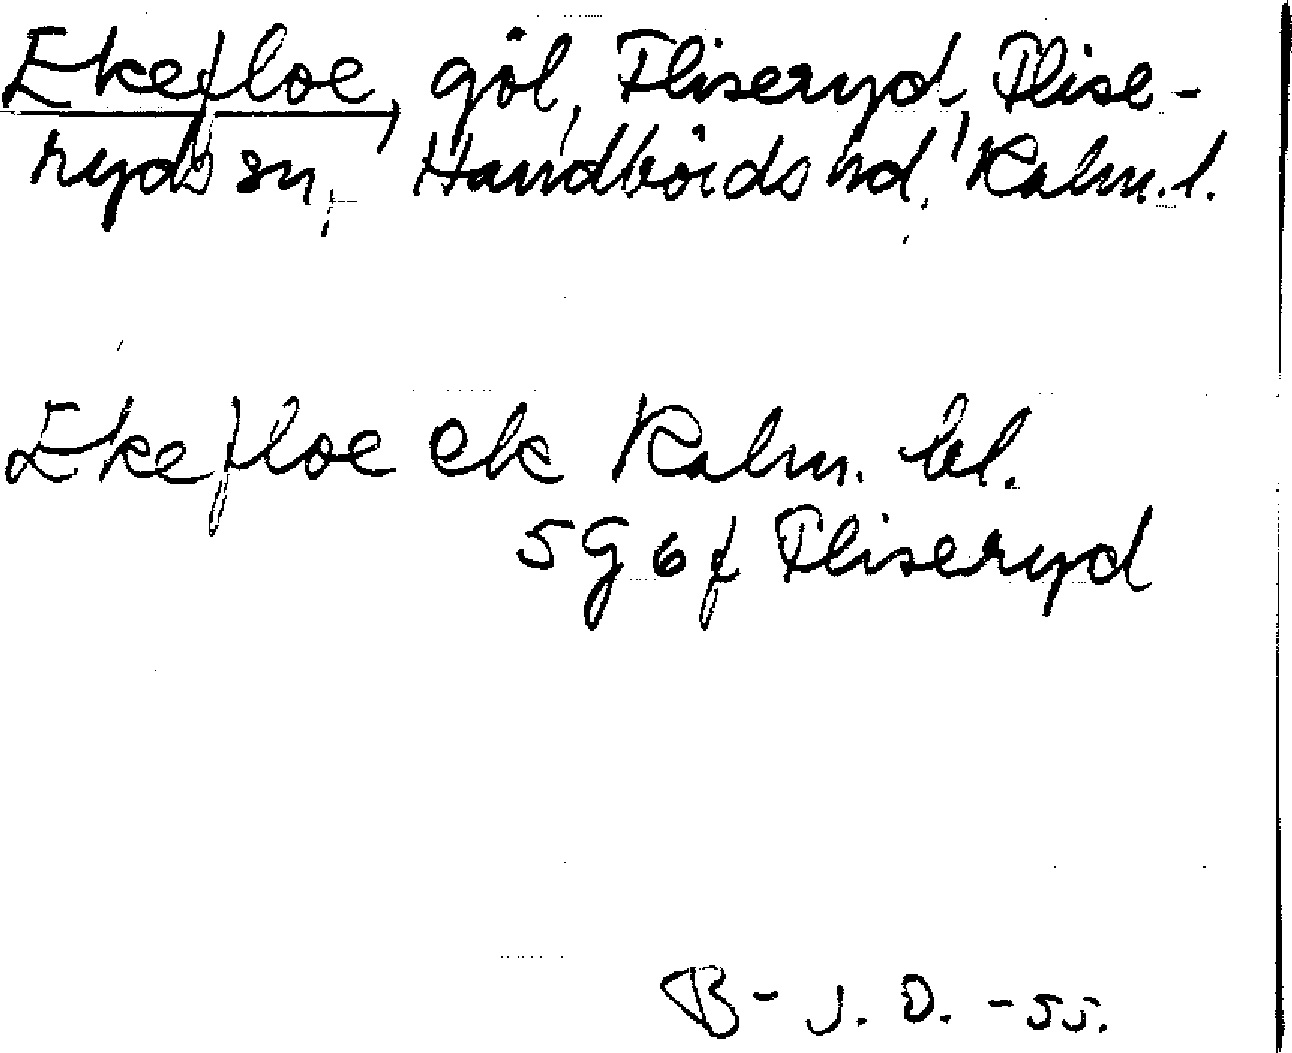 Ekefloe, göl, Fliseryd, Flise-
ryds sn, Handbörds hd, Kalm. l.
Ekefloe ek Kalm. bl.
5 G 6 f Fliseryd
B-J. D. -55.